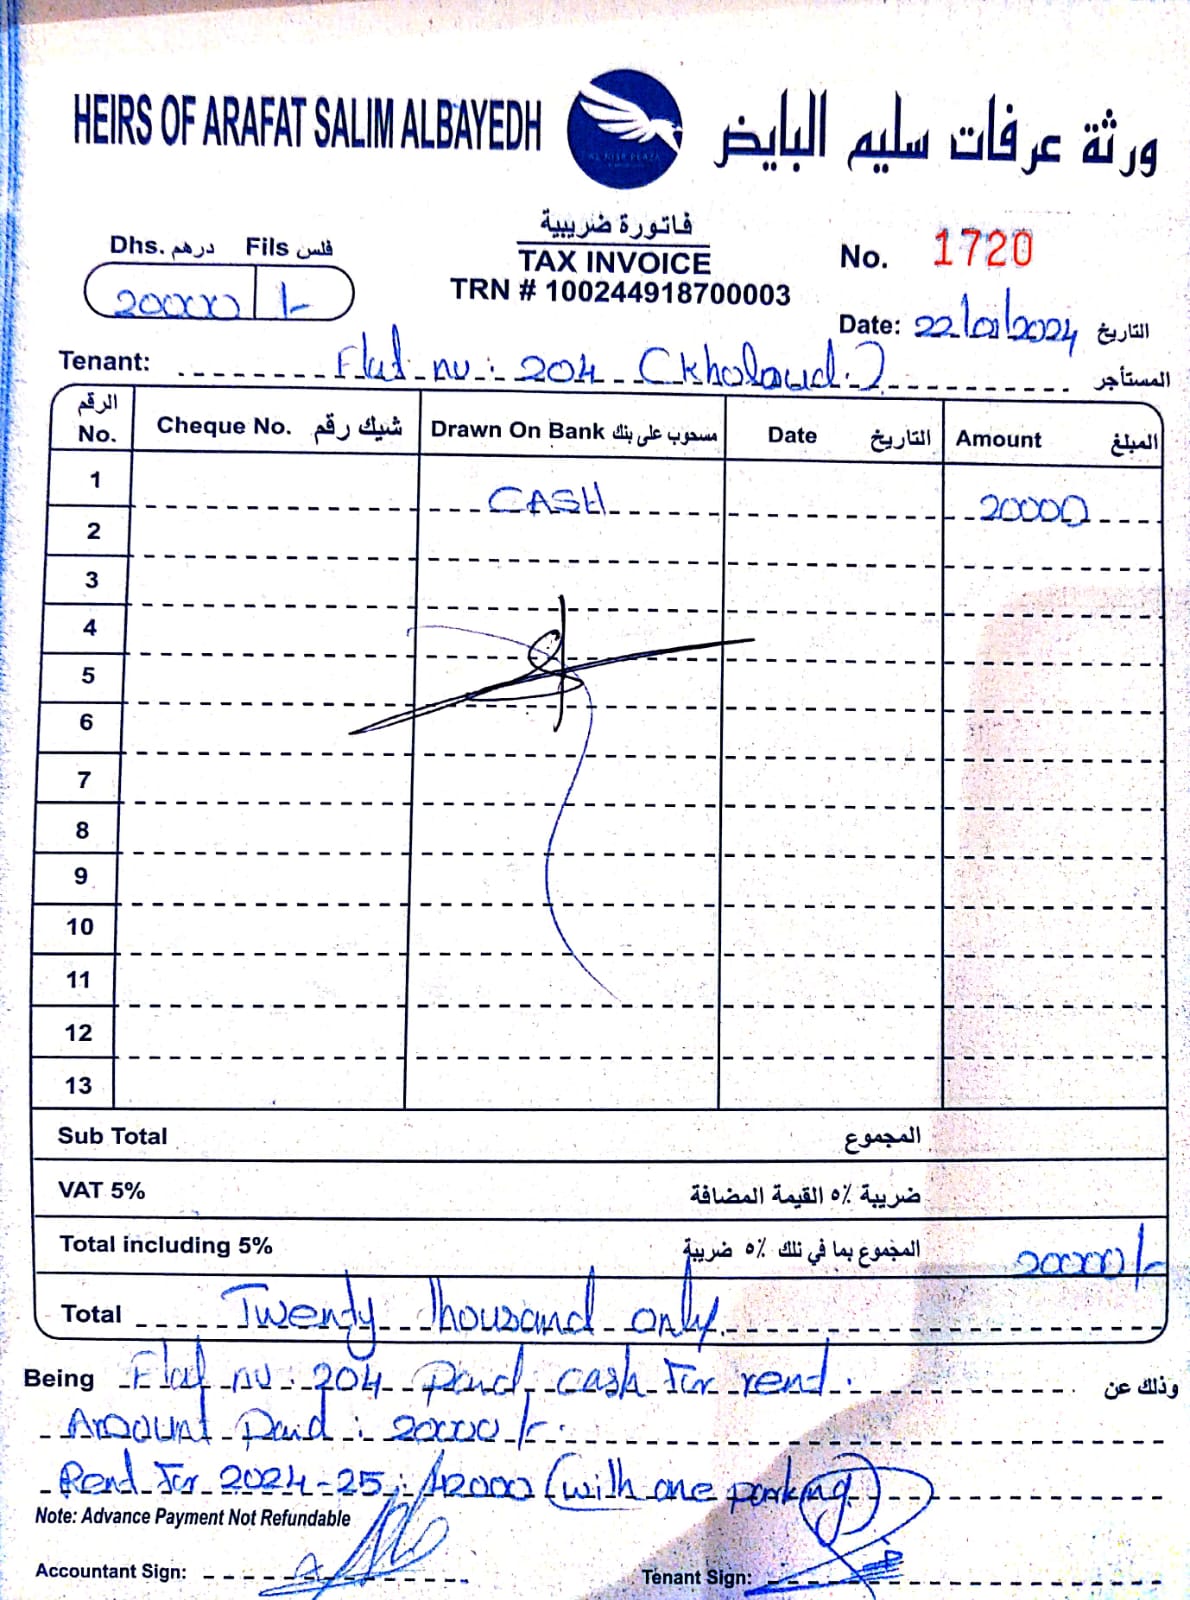 HEIRS OF ARAFAT SALIM ALBAYEDH ورثة عرفات سليم البايض
فاتورة ضريبية
Dhs. درهم Fils فلس
TAX INVOICE
No. 1720
TRN # 100244918700003
20000 /-
Date: 22/01/2024 التاريخ
Tenant: Flat no: 204 (kholoud) المستأجر
الرقم No. Cheque No. شيك رقم Drawn On Bank مسحوب على بنك Date التاريخ Amount المبلغ
1 CASH 20000
2
3
4
5
6
7
8
9
10
11
12
13
Sub Total المجموع
VAT 5% ضريبة ٥٪ القيمة المضافة
Total including 5% المجموع بما في ذلك ٥٪ ضريبة 20000/-
Total Twenty thousand only
Being Flat no: 204 paid cash for rent. وذلك عن
Amount paid: 20000/-
Rent for 2024-25: 42000 (with one parking)
Note: Advance Payment Not Refundable
Accountant Sign:
Tenant Sign: